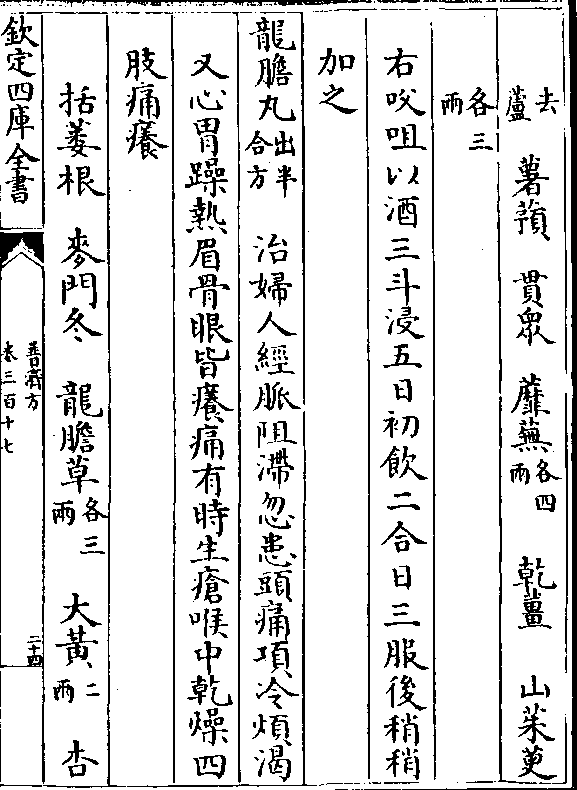 去蘆 薯蕷 貫衆 蘼蕪各四兩 乾薑 山茱萸
各三兩
右㕮咀以酒三斗浸五日初飲二合日三服後稍稍
加之
龍膽丸出半合方 治婦人經脈阻滯忽患頭痛項冷煩渴
又心胃躁熱眉骨眼皆癢痛有時生瘡喉中乾燥四
肢痛癢
括蔞根 麥門冬 龍膽草各三兩 大黃二兩 杏
欽定四庫全書
普濟方
卷三百十七
二十四